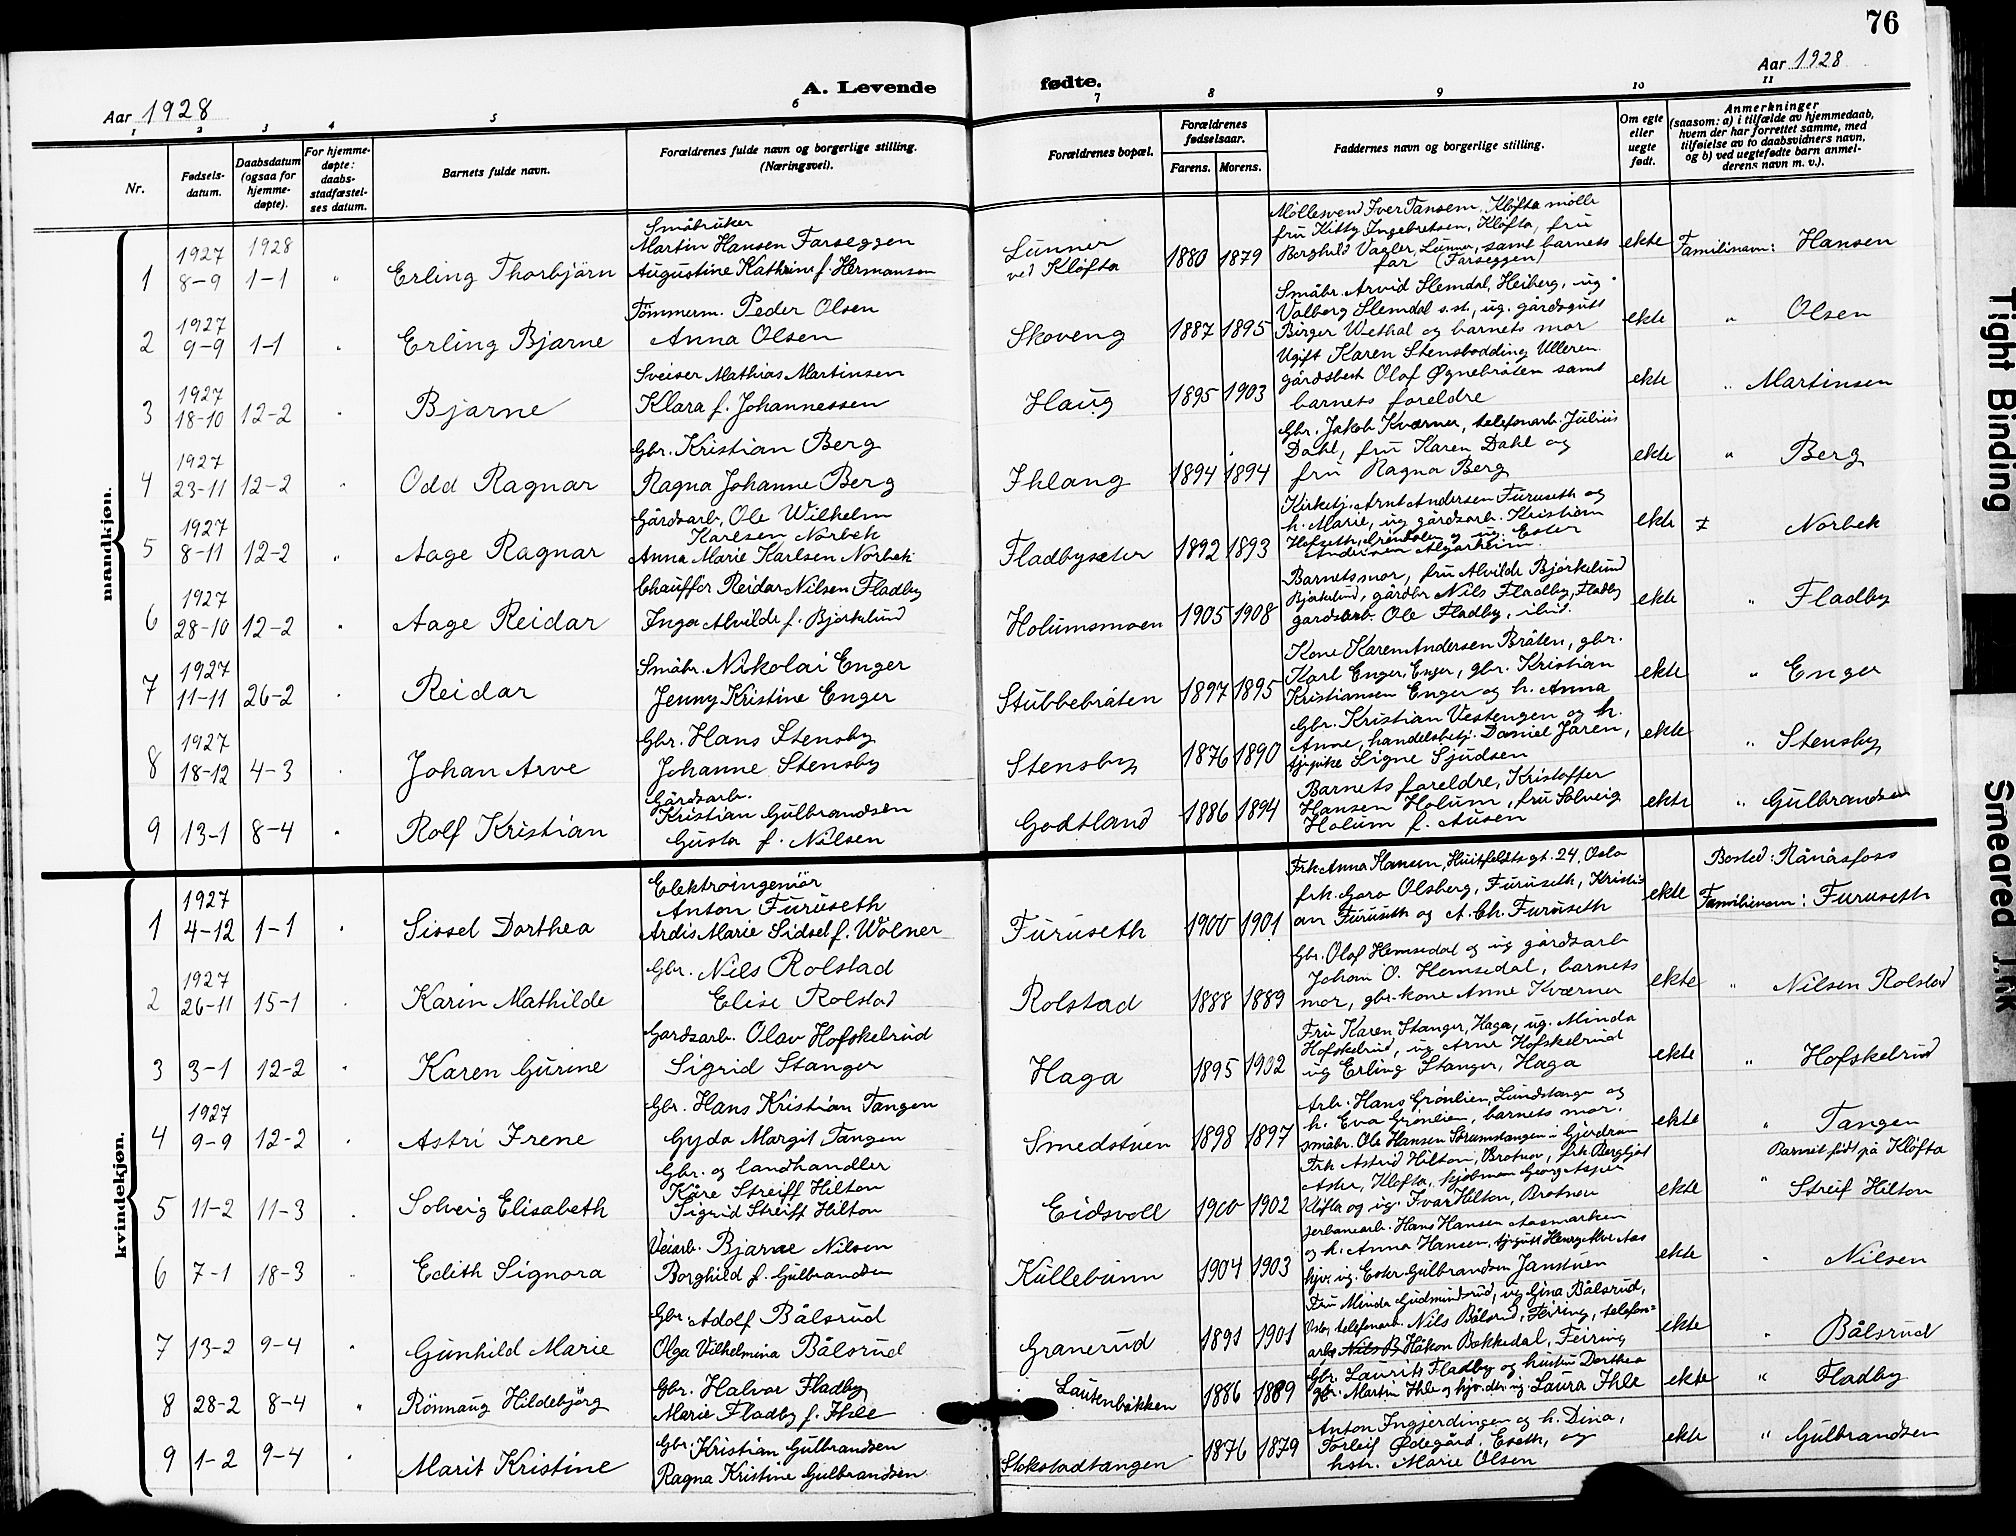 76
Aar 1928
A. Levende
fødte.
Aar 1928
1 2 3 4 5 6 7 8 9 10 11
Nr.
Fødsels-
datum.
Daabsdatum
(ogsaa for
hjemme-
døpte).
For hjemme-
døpte:
daabs-
stadfæstel-
ses datum.
Barnets fulde navn.
Forældrenes fulde navn og borgerlige stilling.
(Næringsvei).
Forældrenes bopæl.
Forældrenes
fødselsaar.
Farens. Morens.
Faddernes navn og borgerlige stilling.
Om egte
eller
uegte
født.
Anmerkninger
(saasom: a) i tilfælde av hjemmedaab,
hvem der har forrettet samme, med
tilføielse av to daabsvidners navn,
og b) ved uegtefødte barn anmel-
derens navn m. v.).
mandkjøn.
1
1927
8-9
1928
1-1
"
Erling Thorbjörn
Småbruker
Martin Hansen Farseggen
Augustine Kathrine f. Hermansen
Lunner
ved Kløfta
1880 1879
Møllesvend Iver Tansem, Kløfta mølle
fru Kitty Ingebretsen, Kløfta, fru
Borghild Vagler, Lunner, samt barnets
far (Farseggen)
ekte
Familienavn: Hansen
2
1927
9-9
1-1
"
Erling Bjarne
Tömmerm. Peder Olsen
Anna Olsen
Skoveng
1887 1895
Småbr. Arvid Slemdal, Heiberg, ug.
Valborg Slemdal s.st., ug. gårdsgutt
Birger Wethal og barnets mor
ekte
" Olsen
3
1927
18-10
12-2
"
Bjarne
Sveiser Mathias Martinsen
Klara f. Johannessen
Haug
1895 1903
Ugift Karen Stensbodding Ulleren
gårdsbest. Olaf Øgnebråten samt
barnets foreldre
ekte
" Martinsen
4
1927
23-11
12-2
"
Odd Ragnar
Gbr. Kristian Berg
Ragna Johanne Berg
Ihlang
1894 1894
Gbr. Jakob Kværner, telefonarb. Julius
Dahl, fru Karen Dahl og
fru Ragna Berg
ekte
" Berg
5
1927
8-11
12-2
"
Aage Ragnar
Gårdsarb. Ole Wilhelm
Karlsen Norbek
Anna Marie Karlsen Norbek
Fladbyseter
1892 1893
Kirketj. Arnt Andersen Furuseth og
h. Marie, ug gårdsarb. Kristian
Hofseth, Grönbolen og ug. Ester
Andersen Algarheim.
ekte
Norbek
6
1927
28-10
12-2
"
Aage Reidar
Chauffør Reidar Nilsen Fladby
Inga Alvilde f. Bjørkelund
Holumsmoen
1905 1908
Barnets mor, fru Alvilde Bjørkelund
Bjørkelund, gårdbr Nils Fladby, Fladby
gardsarb. Ole Fladby, ibid.
ekte
" Fladby
7
1927
11-11
26-2
"
Reidar
Småbr. Nikolai Enger
Jenny Kristine Enger
Stubbebråten
1897 1895
Kone Karen Andersen Bråten, gbr.
Karl Enger, Enger, gbr. Kristian
Kristiansen Enger og h. Anna
ekte
" Enger
8
1927
18-12
4-3
"
Johan Arve
Gbr. Hans Stensby
Johanne Stensby
Stensby
1876 1890
Gbr. Kristian Vestengen og h.
Anne, handelsbetj. Daniel Jaren,
tjpike Signe Sjudsen
ekte
" Stensby
9
13-1
8-4
"
Rolf Kristian
Gårdsarb.
Kristian Gulbrandsen
Gusta f. Nilsen
Godtland
1886 1894
Barnets foreldre, Kristoffer
Hansen Holum, fru Solveig
Holum f. Ausen
ekte
" Gulbrandsen
kvindekjøn.
1
1927
4-12
1-1
"
Sissel Dorthea
Elektroingeniör
Anton Furuseth
Ardis Marie Sidsel f. Wolner
Furuseth
1900 1901
Frk Anna Hansen, Huitfeldts gt. 24, Oslo
frk. Gora Olsberg, Furuseth, Kristi-
an Furuseth og A. Ch. Furuseth
ekte
Bosted: Rånåsfoss
Familienavn: Furuseth
2
1927
26-11
15-1
"
Karin Mathilde
Gbr. Nils Rolstad
Elise Rolstad
Rolstad
1888 1889
Gbr. Olaf Hemsedal og ug gårdsarb
Johan O. Hemsedal, barnets
mor, gbr.kone Anne Kværner
ekte
" Nilsen Rolstad
3
3-1
12-2
"
Karen Gurine
Gardsarb. Olav Hofskelrud
Sigrid Stanger
Haga
1895 1902
Fru Karen Stanger, Haga, ug. Minda
Hofskelrud, ug Arne Hofskelrud
ug Erling Stanger, Haga
ekte
" Hofskelrud
4
1927
9-9
12-2
"
Astri Irene
Gbr. Hans Kristian Tangen
Gyda Margit Tangen
Smedstuen
1898 1897
Arb. Hans Grönlien, Lundstange og
h. Eva Grönlien, barnets mor.
småbr. Ole Hansen Strumstangen i Gjerdrum
ekte
" Tangen
Barnet født på Kløfta
5
11-2
11-3
"
Solveig Elisabeth
Gbr. og landhandler
Kåre Streiff Hilton
Sigrid Streiff Hilton
Eidsvoll
1900 1902
Frk Astrid Hilton, Brotnov, frk Bergljot
Kløfta og ug. Ivar Hilton, Brotnov
ekte
" Streif Hilton
6
7-1
18-3
"
Edith Signora
Veiarb. Bjarne Nilsen
Borghild f. Gulbrandsen
Kullebunn
1904 1903
Jerbanearb. Hans Hansen Aasmarken
og h. Anna Hansen, tjgutt Henry Alve Aas
hjv. ug. Ester Gulbrandsen Janstuen
ekte
" Nilsen
7
13-2
9-4
"
Gunhild Marie
Gbr. Adolf Bålsrud
Olga Vilhelmina Bålsrud
Granerud
1891 1901
Fru Minda Gudmundsrud, ug Gina Bålsrud,
Oslo, telefonarb. Nils Bålsrud, Feiring, telefon=
arb. Håkon Bakkedal, Feiring
ekte
" Bålsrud
8
28-2
8-4
"
Rönnaug Hildebjörg
Gbr. Halvor Fladby
Marie Fladby f. Ihle
Lautenbakken
1886 1889
Gbr. Laurits Fladby og hustru Dorthea
gbr. Martin Ihle og hjv. der ug. Laura Ihle
ekte
" Fladby
9
1-2
9-4
"
Marit Kristine
Gbr. Kristian Gulbrandsen
Ragna Kristine Gulbrandsen
Stokstadtangen
1876 1879
Anton Ingjerdingen og h. Dina,
Torleif Ødegård, Eseth, og
hstr. Marie Olsen
ekte
" Gulbrandsen
Tight Binding
Smeared Ink